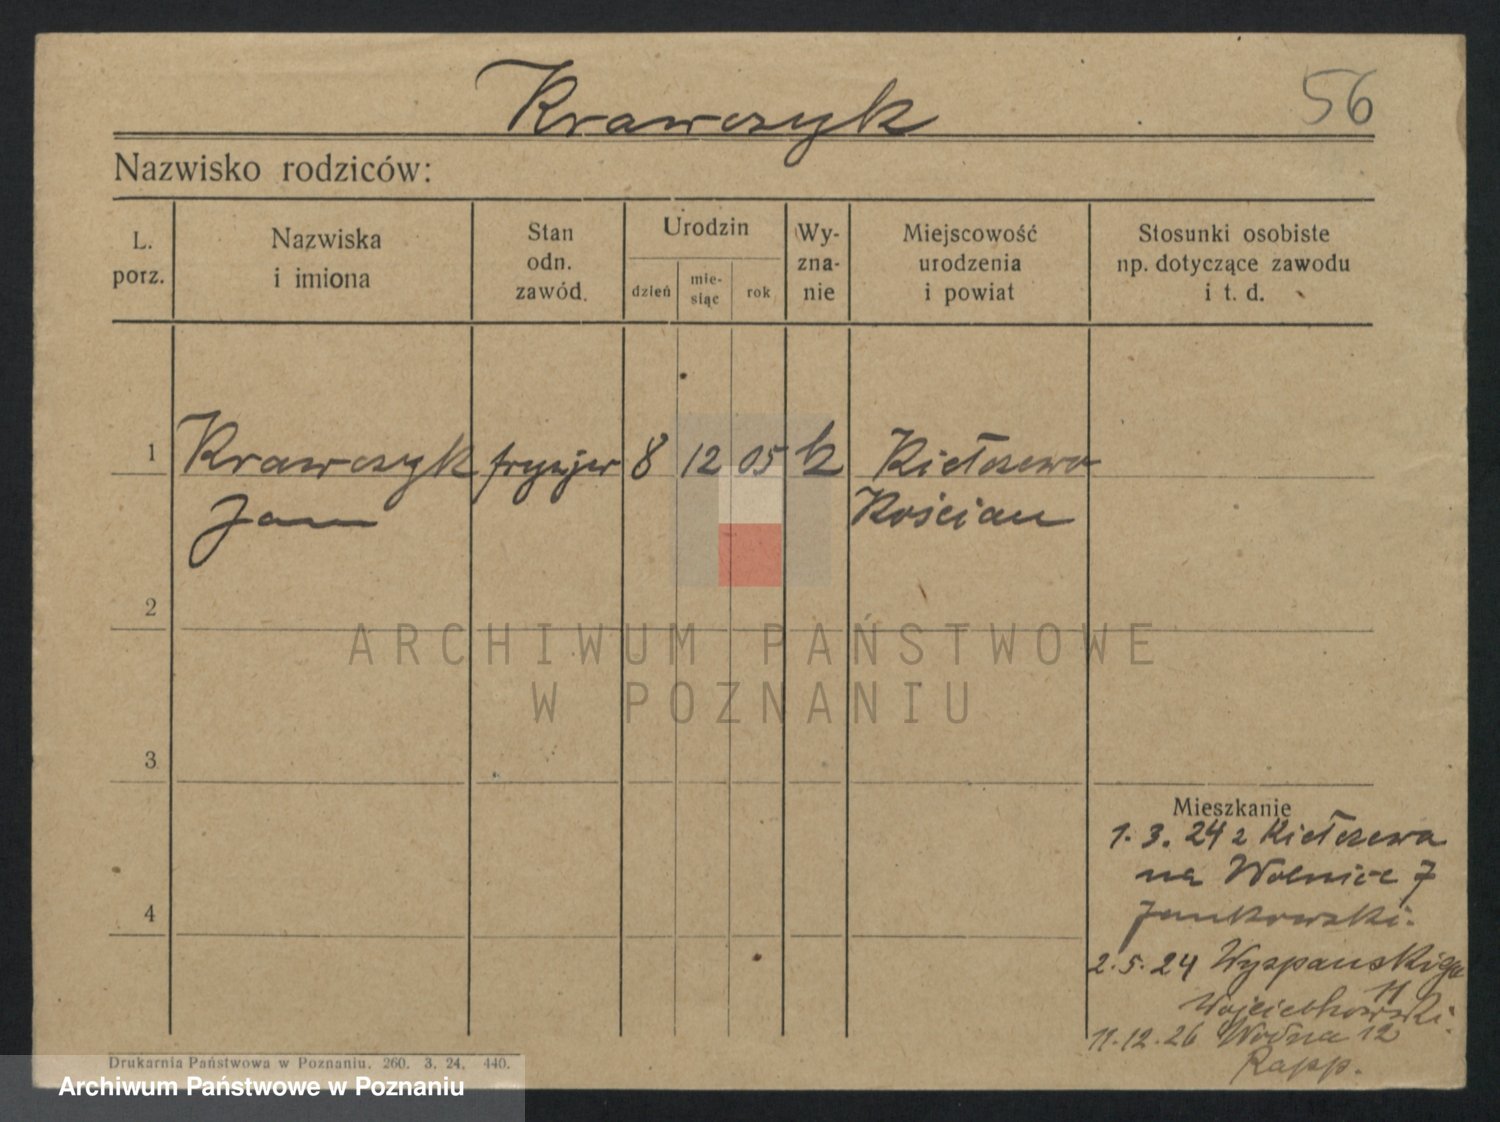 Krawczyk
56
Nazwisko rodziców:
L. porz.
Nazwiska i imiona
Stan odn. zawód.
Urodzin
dzień
mie-siąc
rok
Wy-zna-nie
Miejscowość urodzenia i powiat
Stosunki osobiste np. dotyczące zawodu i t. d.
1 Krawczyk fryzjer 8 12 05 k Kiełczewo
Jan Kościan
2
ARCHIWUM PAŃSTWOWE
W POZNANIU
3
Mieszkanie
1.3.24 z Kiełczewa
na Wolnice 7
Jankowski.
4
2.5.24 Wyspańskiego
11
Wojciechowski.
11.12.26 Wodna 12
Rapp.
Drukarnia Państwowa w Poznaniu. 260. 3. 24. 440.
Archiwum Państwowe w Poznaniu